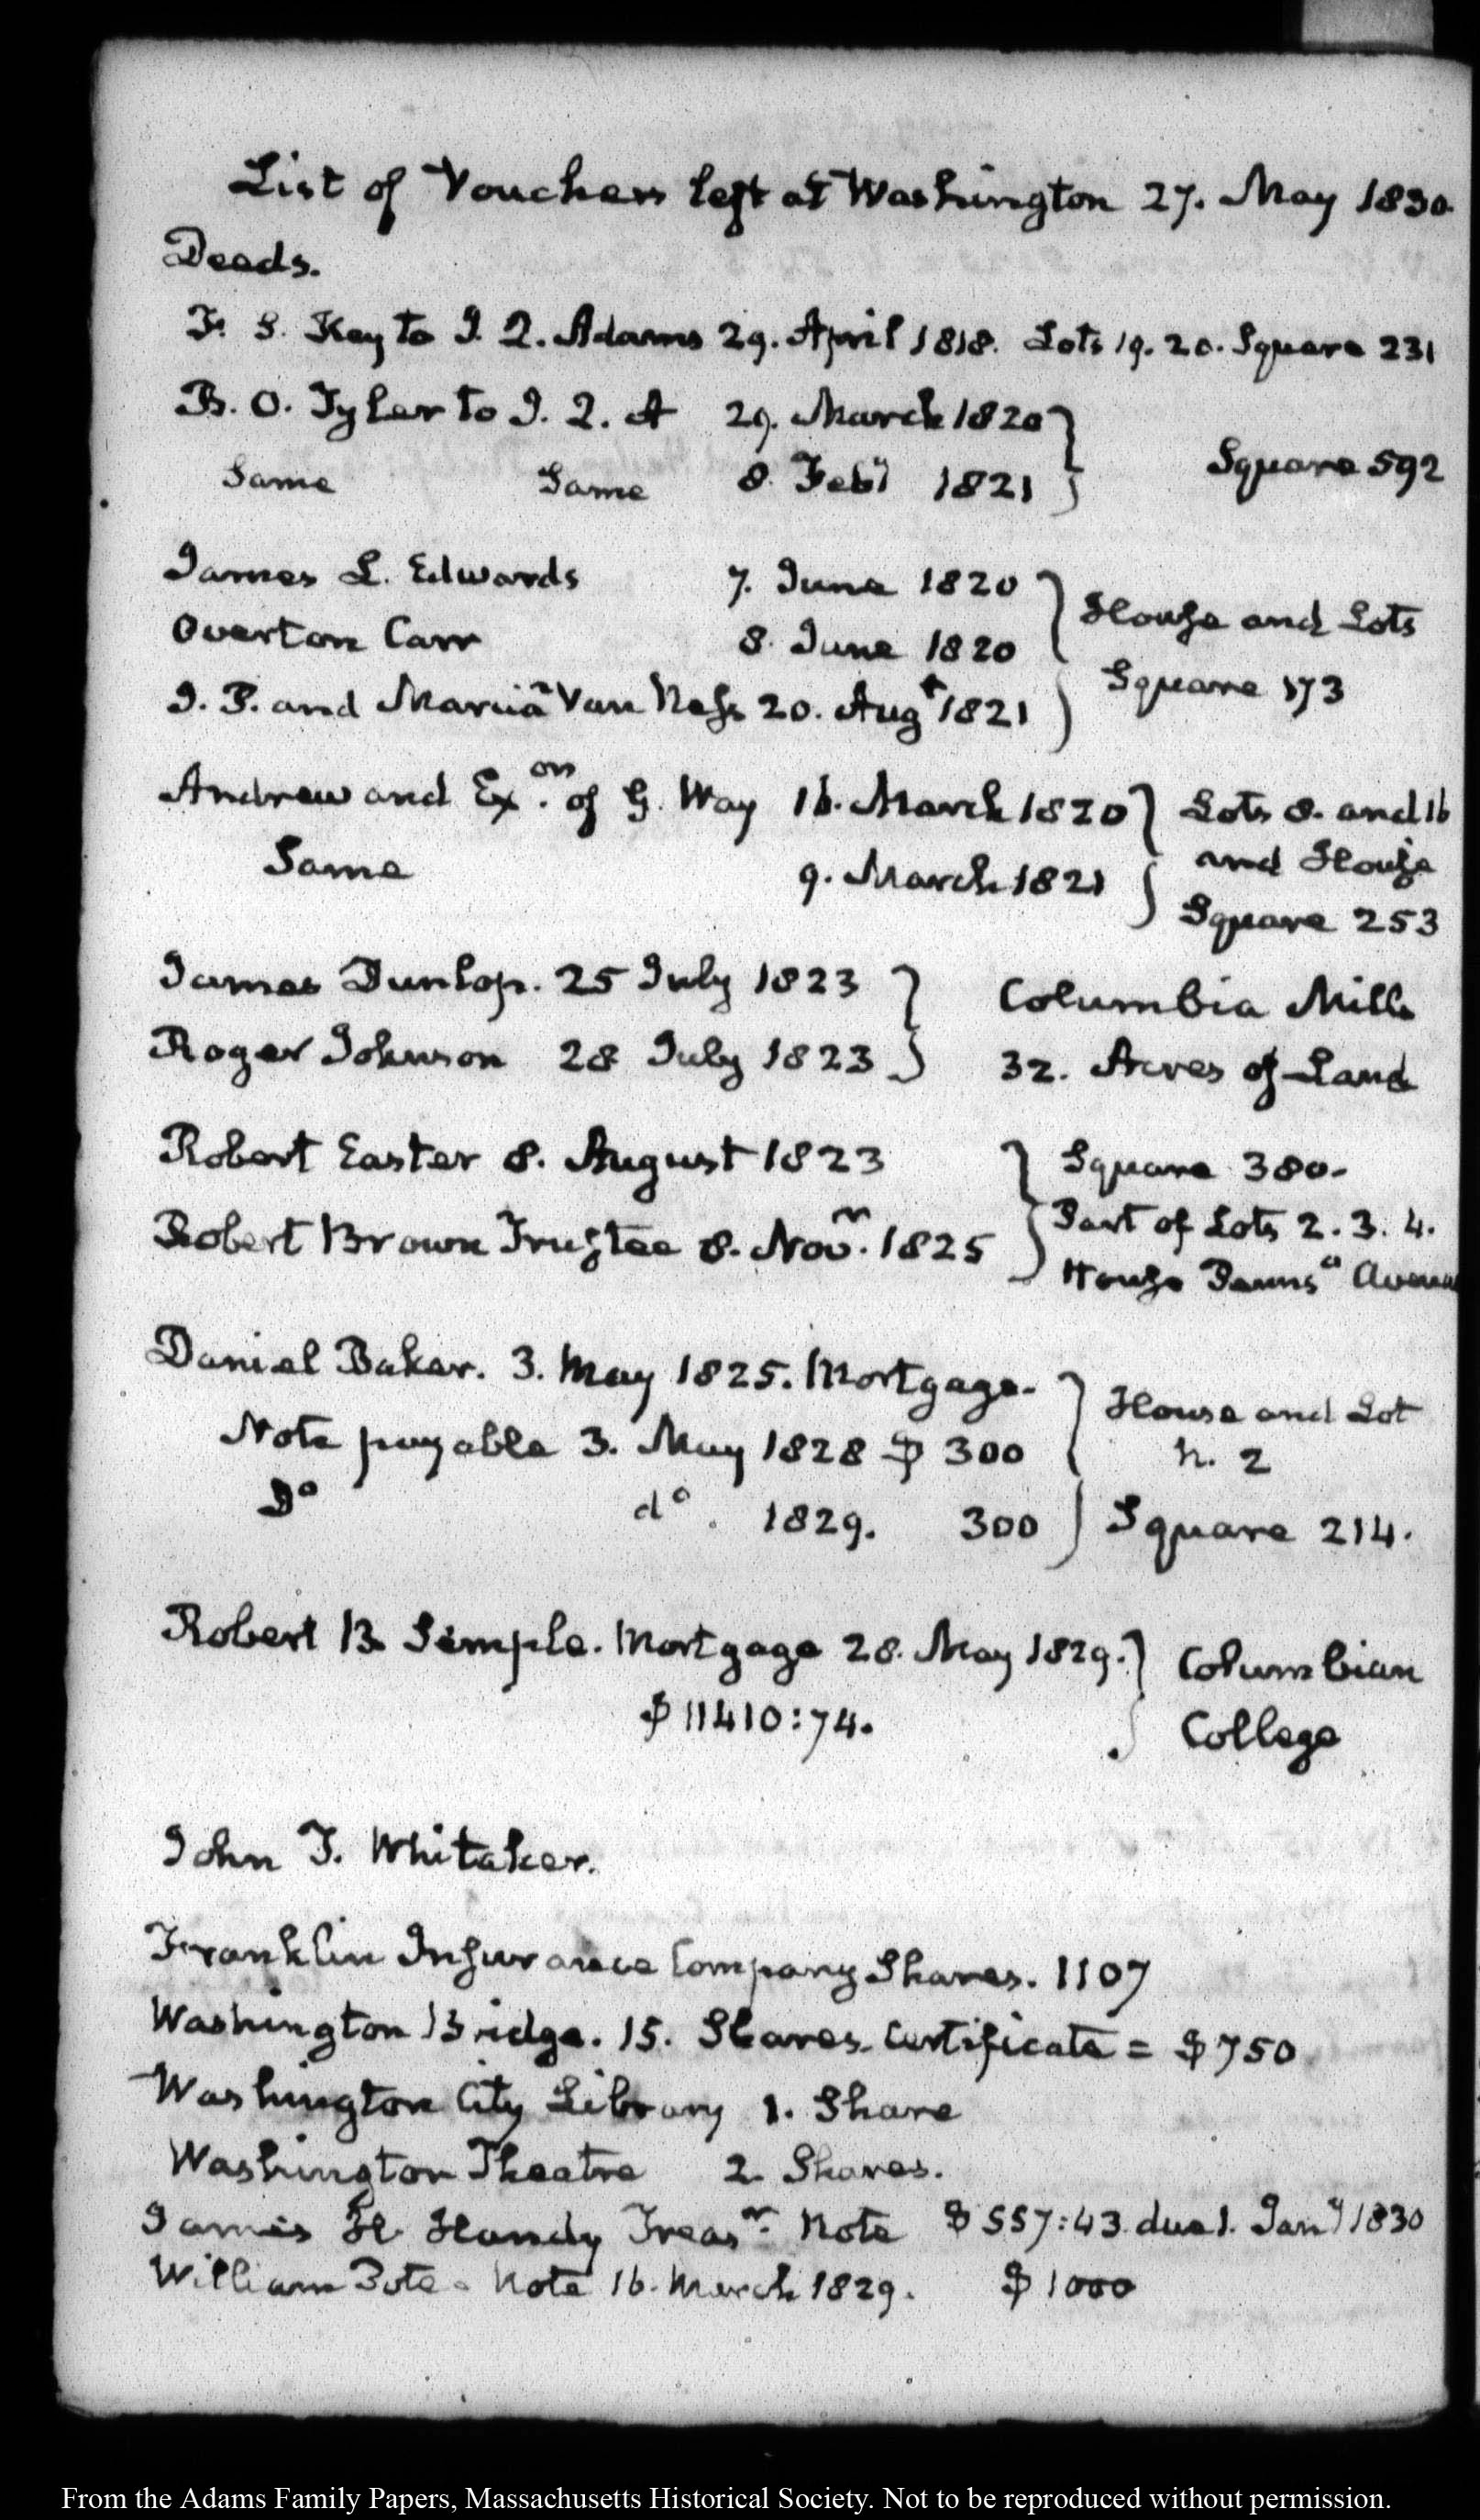 List of Vouchers left at Washington 27. May 1830.
Deeds.
F. S. Key to J. Q. Adams 29. April 1818. Lots 19. 20. Square 231
B. O. Tyler to J. Q. A 29. March 1820
Same Same 8. Feby 1821 Square 592
James L. Edwards 7. June 1820
Overton Carr 8. June 1820 House and Lots
J. P. and Marcia Van Ness 20. Augt 1821 Square 173
Andrew and Exon. of G. Way 16. March 1820 Lots 8. and 16
Same 9. March 1821 and House
Square 253
James Dunlop. 25 July 1823 Columbia Mills
Roger Johnson 28 July 1823 32. Acres of Land
Robert Easter 8. August 1823 Square 380.
Part of Lots 2. 3. 4.
Robert Brown Trustee 8. Novr. 1825 House Pennsa Avenue
Daniel Baker. 3. May 1825. Mortgage. House and Lot
Note payable 3. May 1828 $ 300 n. 2
Do do. 1829. 300 Square 214.
Robert B Semple. Mortgage 28. May 1829. Columbian
$ 11410:74. College
John F. Whitaker.
Franklin Insurance Company Shares. 1107
Washington Bridge. 15. Shares. Certificate = $ 750
Washington City Library 1. Share
Washington Theatre 2 Shares.
James H. Handy Treasr. Note $ 557:43. due 1. Jany 1830
William Note 16. March 1829. $ 1000
From the Adams Family Papers, Massachusetts Historical Society. Not to be reproduced without permission.